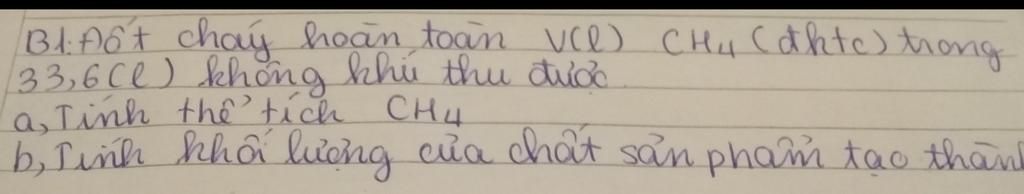 B1: Đốt cháy hoàn toàn V(l) CH4 (đktc) trong
33,6(l) không khí thu được
a, Tính thể tích CH4
b, Tính khối lượng của chất sản phẩm tạo thàn